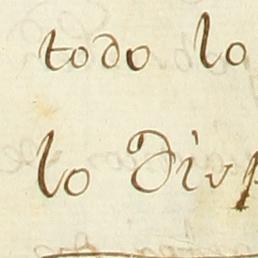 todo lo
lo Disp